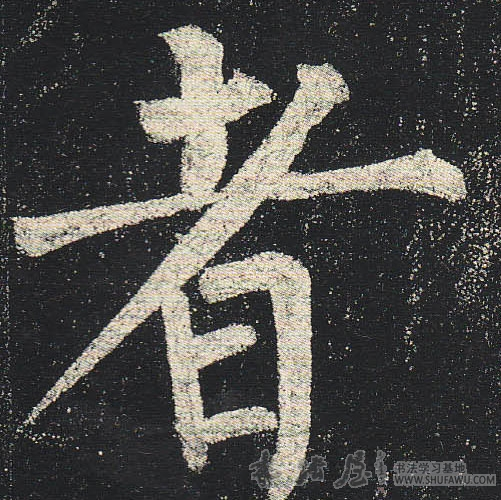 者
书法学习基地
WWW.SHUFAWU.COM